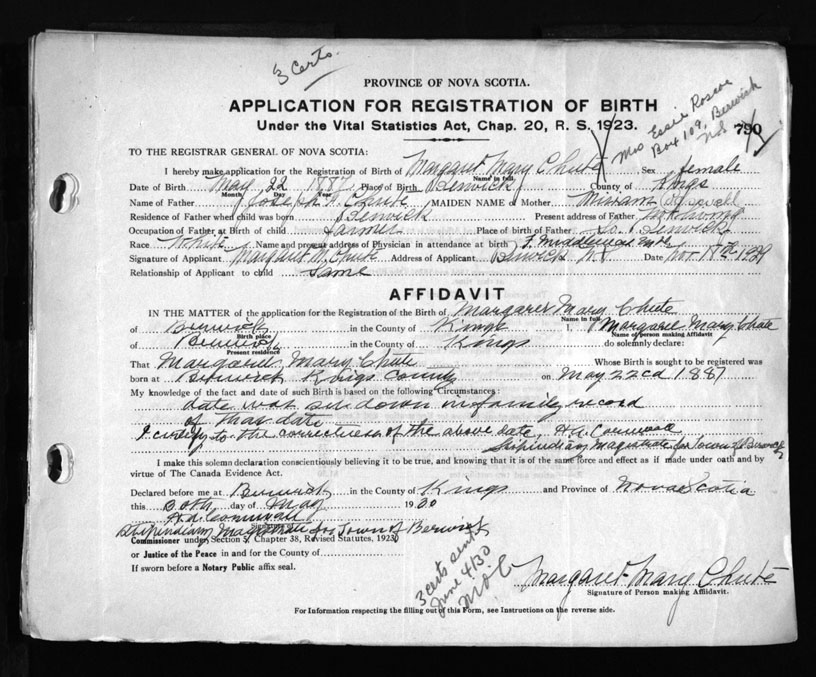 3 Certs.
PROVINCE OF NOVA SCOTIA.
APPLICATION FOR REGISTRATION OF BIRTH
Under the Vital Statistics Act, Chap. 20, R. S. 1923.
Mrs Essie Roscoe
Box 109, Berwick
N.S.
790
TO THE REGISTRAR GENERAL OF NOVA SCOTIA:
I hereby make application for the Registration of Birth of Margaret Mary Chute Sex female
Name in full
Date of Birth May 22 1887 Place of Birth Berwick County of Kings
Month Day Year
Name of Father Joseph A. Chute MAIDEN NAME of Mother Miriam
Residence of Father when child was born Berwick Present address of Father
Occupation of Father at Birth of child Farmer Place of birth of Father So. Berwick
Race White Name and present address of Physician in attendance at birth F. Middlemas
Signature of Applicant Margaret M. Chute Address of Applicant Berwick N.S. Date Nov. 18th 1929
Relationship of Applicant to child Same
AFFIDAVIT
IN THE MATTER of the application for the Registration of the Birth of Margaret Mary Chute
Name in full
of Berwick in the County of Kings I, Margaret Mary Chute
Birth place Name of person making Affidavit
of Berwick in the County of Kings do solemnly declare:
Present residence
That Margaret Mary Chute Whose Birth is sought to be registered was
born at Berwick Kings County on May 22cd 1887
My knowledge of the fact and date of such Birth is based on the following Circumstances:
date was set down in family record
of that date
I certify to the correctness of the above date, H.A. Cornwall
Stipindiary Magistrate for Town of Berwick
I make this solemn declaration conscientiously believing it to be true, and knowing that it is of the same force and effect as if made under oath and by
virtue of The Canada Evidence Act.
Declared before me at Berwick in the County of Kings and Province of Nova Scotia
this 30th day of May 1930
H.A. Cornwall
Signature of
Stipindiary Magistrate for Town of Berwick
Commissioner under Section 5, Chapter 38, Revised Statutes, 1923
or Justice of the Peace in and for the County of
If sworn before a Notary Public affix seal.
3 certs sent
June 4/30
Margaret Mary Chute
Signature of Person making Affidavit.
For Information respecting the filling out of this Form, see Instructions on the reverse side.